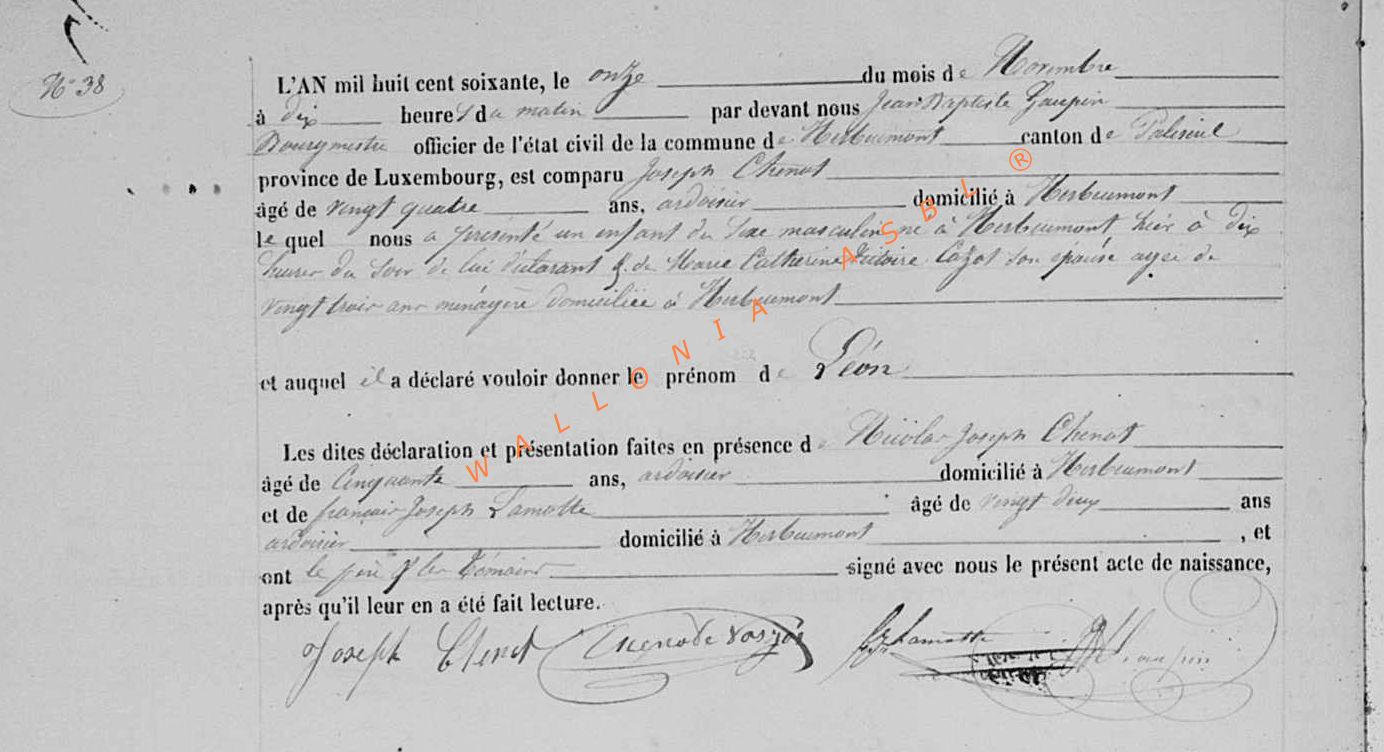 N° 38
L'AN mil huit cent soixante, le onze du mois de Novembre
à dix heures du matin par devant nous Jean Baptiste Gaupin
Bourgmestre officier de l'état civil de la commune de Herbeumont canton de Paliseul
province de Luxembourg, est comparu Joseph Chenot
âgé de vingt quatre ans, ardoisier domicilié à Herbeumont
le quel nous a présenté un enfant du sexe masculin né à Herbeumont hier à dix
heures du soir de lui déclarant & de Marie Catherine Victoire Cazot son épouse agée de
vingt trois ans ménagère domiciliée à Herbeumont
et auquel il a déclaré vouloir donner le prénom de Léon
Les dites déclaration et présentation faites en présence de Nicolas Joseph Chenot
âgé de Cinquante ans, ardoisier domicilié à Herbeumont
et de françois Joseph Lamotte âgé de vingt deux ans
ardoisier domicilié à Herbeumont , et
ont le père & les témoins signé avec nous le présent acte de naissance,
après qu'il leur en a été fait lecture.
Joseph Chenot Lamotte Gaupin
WALLONIA ASBL ®